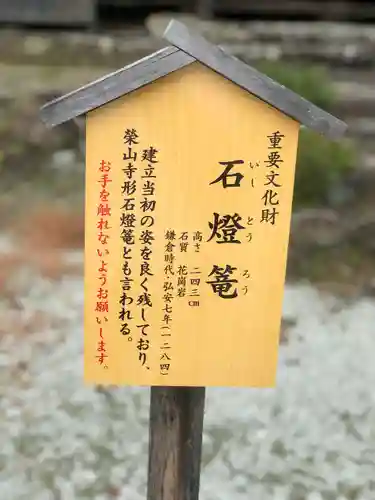 重要文化財
石燈篭
いしとうろう
高さ 二四三㎝
石質 花崗岩
鎌倉時代・弘安七年(一二八四)
建立当初の姿を良く残しており、
榮山寺形石燈篭とも言われる。
お手を触れないようお願いします。